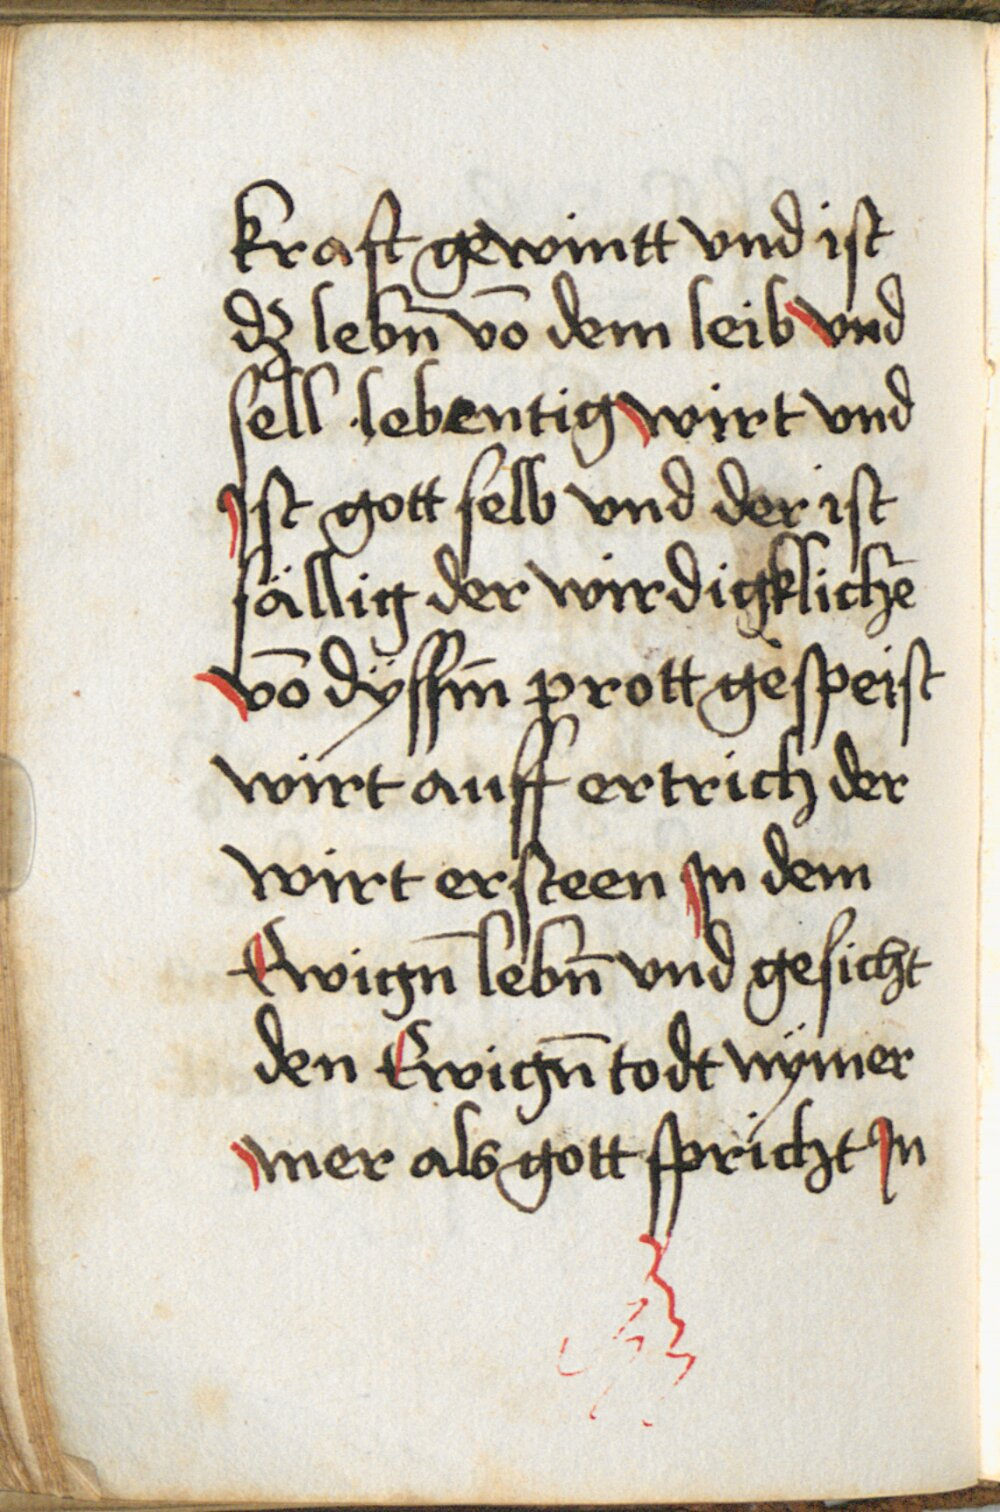 kraft gewintt vnd ist
dz lebn̄ vō dem leib vnd
sell lebentig wirt vnd
Ist gott selb vnd der ist
sällig der wirdigklichē
vō dÿssm̄ prott gespeist
wirt auff ertrich der
wirt ersteen In dem
Ewign̄ lebn̄ vnd gesicht
den Ewign̄ todt nÿmer
mer als gott spricht In